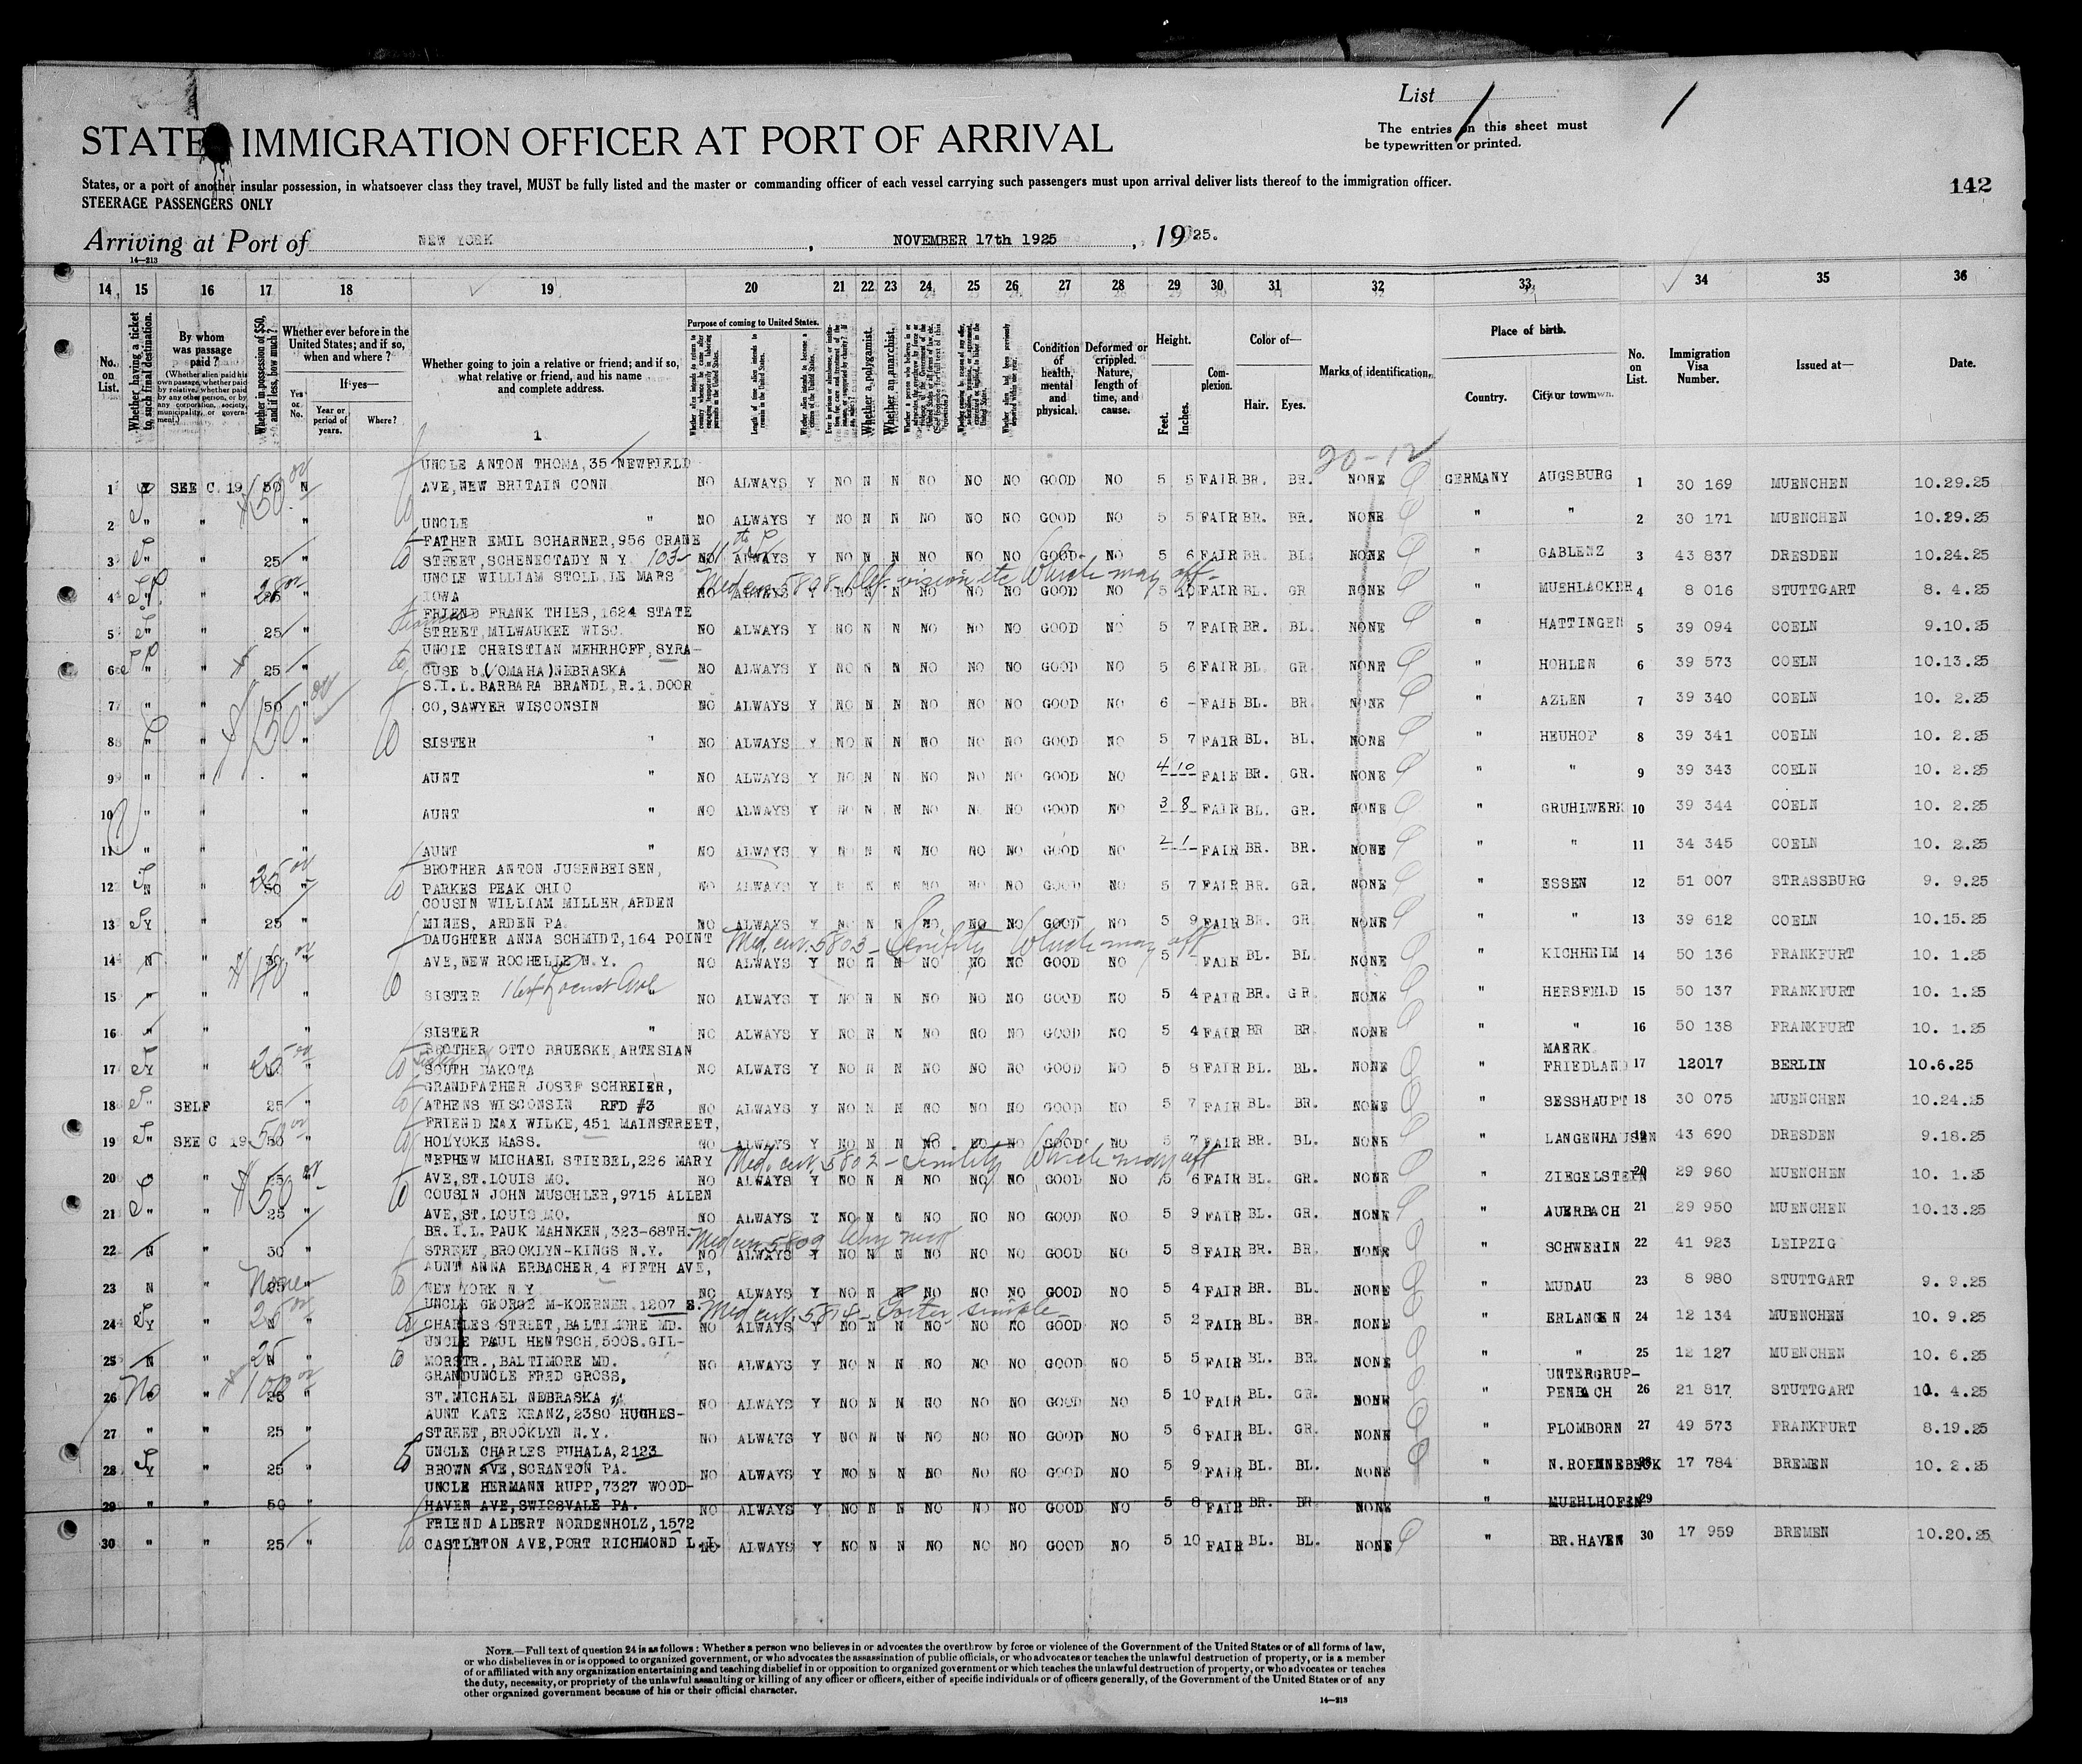 List 1
1
The entries on this sheet must
be typewritten or printed.
STATES IMMIGRATION OFFICER AT PORT OF ARRIVAL
States, or a port of another insular possession, in whatsoever class they travel, MUST be fully listed and the master or commanding officer of each vessel carrying such passengers must upon arrival deliver lists thereof to the immigration officer.
142
STEERAGE PASSENGERS ONLY
Arriving at Port of NEW YORK, NOVEMBER 17th 1925, 1925.
14—213
14 15 16 17 18 19 20 21 22 23 24 25 26 27 28 29 30 31 32 33 34 35 36
No. on List.
Whether having a ticket to such final destination.
By whom was passage paid?
(Whether alien paid his own passage, whether paid by relative, whether paid by any other person, or by any corporation, society, municipality, or government.)
Whether in possession of $50, and if less, how much?
Whether ever before in the United States; and if so, when and where?
Yes or No.
If yes—
Year or period of years.
Where?
Whether going to join a relative or friend; and if so, what relative or friend, and his name and complete address.
Purpose of coming to United States.
Length of time alien intends to remain in the United States.
Whether alien intends to become a citizen of the United States.
Whether a polygamist.
Whether an anarchist.
Condition of health, mental and physical.
Deformed or crippled. Nature, length of time, and cause.
Height.
Feet. Inches.
Complexion.
Color of—
Hair. Eyes.
Marks of identification.
Place of birth.
Country. City or town.
No. on List.
Immigration Visa Number.
Issued at—
Date.
1
20-12
UNCLE ANTON THOMA, 35 NEWFIELD
1 SEE C. 19 50 N AVE, NEW BRITAIN CONN. NO ALWAYS Y NO N N NO NO NO GOOD NO 5 5 FAIR BR. BR. NONE GERMANY AUGSBURG 1 30 169 MUENCHEN 10.29.25
2 " " " UNCLE " NO ALWAYS Y NO N N NO NO NO GOOD NO 5 5 FAIR BR. BR. NONE " " 2 30 171 MUENCHEN 10.29.25
FATHER EMIL SCHARNER, 956 CRANE
3 " " 25 " STREET, SCHENECTADY N Y. NO ALWAYS Y NO N N NO NO NO GOOD NO 5 6 FAIR BR. BL NONE " GABLENZ 3 43 837 DRESDEN 10.24.25
UNCLE WILLIAM STOLL, LE MARS
Med cert 5828 Def. vision etc Which may aff-
4 " " 25 " IOWA NO ALWAYS Y NO N N NO NO NO GOOD NO 5 10 FAIR BL. GR NONE " MUEHLACKER 4 8 016 STUTTGART 8. 4.25
FRIEND FRANK THIES, 1624 STATE
5 " " 25 " STREET, MILWAUKEE WISC. NO ALWAYS Y NO N N NO NO NO GOOD NO 5 7 FAIR BR. BL. NONE " HATTINGEN 5 39 094 COELN 9.10.25
UNCLE CHRISTIAN MEHRHOFF, SYRA-
6 " " 25 " CUSE b. (OMAHA) NEBRASKA NO ALWAYS Y NO N N NO NO NO GOOD NO 5 6 FAIR BL GR. NONE " HOHLEN 6 39 573 COELN 10.13.25
S.I.L. BARBARA BRANDL, R.1. DOOR
7 " " 50 " CO, SAWYER WISCONSIN NO ALWAYS Y NO N N NO NO NO GOOD NO 6 - FAIR BL. BR NONE " AZLEN 7 39 340 COELN 10. 2.25
8 " " " SISTER " NO ALWAYS Y NO N N NO NO NO GOOD NO 5 7 FAIR BL. BL. NONE " HEUHOF 8 39 341 COELN 10. 2.25
9 " " " AUNT " NO ALWAYS Y NO N N NO NO NO GOOD NO 4 10 FAIR BR. GR. NONE " " 9 39 343 COELN 10. 2.25
10 " " " AUNT " NO ALWAYS Y NO N N NO NO NO GOOD NO 3 8 FAIR BL. GR. NONE " GRUHLWERK 10 39 344 COELN 10. 2.25
11 " " " AUNT " NO ALWAYS Y NO N N NO NO NO GOOD NO 2 1 FAIR BR. BR. NONE " " 11 34 345 COELN 10. 2.25
BROTHER ANTON JUSENBEISEN,
12 N " 50 " PARKES PEAK OHIO NO ALWAYS Y N N N NO NO NO GOOD NO 5 7 FAIR BR. GR. NONE " ESSEN 12 51 007 STRASSBURG 9. 9.25
COUSIN WILLIAM MILLER, ARDEN
13 Y " 25 " MINES, ARDEN PA. NO ALWAYS Y NO N N NO NO NO GOOD NO 5 9 FAIR BR. GR NONE " " 13 39 612 COELN 10.15.25
DAUGHTER ANNA SCHMIDT, 164 POINT
Med. cert. 5803 - Senility Which may aff
14 N " 30 " AVE, NEW ROCHELLE N.Y. NO ALWAYS Y NO N N NO NO NO GOOD NO 5 FAIR BL. BL NONE " KICHHEIM 14 50 136 FRANKFURT 10. 1.25
15 " " " SISTER 164 Locust Ave " NO ALWAYS Y NO N N NO NO NO GOOD NO 5 4 FAIR BR. GR. NONE " HERSFELD 15 50 137 FRANKFURT 10. 1.25
16 " " " SISTER " NO ALWAYS Y NO N N NO NO NO GOOD NO 5 4 FAIR BR BR. NONE " " 16 50 138 FRANKFURT 10. 1.25
BROTHER OTTO BRUESKE, ARTESIAN
MAERK
17 Y " 25 " SOUTH DAKOTA NO ALWAYS Y NO N N NO NO NO GOOD NO 5 8 FAIR BL. BL. NONE " FRIEDLAND 17 12017 BERLIN 10.6.25
GRANDFATHER JOSEF SCHREIER,
18 " SELF 25 " ATHENS WISCONSIN RFD #3 NO ALWAYS Y NO N N NO NO NO GOOD NO 5 7 FAIR BL. BR. NONE " SESSHAUPT 18 30 075 MUENCHEN 10.24.25
FRIEND MAX WILKE, 451 MAINSTREET,
19 " SEE C 19 50 " HOLYOKE MASS. NO ALWAYS Y NO N N NO NO NO GOOD NO 5 7 FAIR BR. BL. NONE " LANGENHAUSEN 19 43 690 DRESDEN 9.18.25
NEPHEW MICHAEL STIEBEL, 226 MARY
Med. cert. 5802 - Senility Which may aff
20 " " 25 " AVE, ST. LOUIS MO. NO ALWAYS Y NO N N NO NO NO GOOD NO 5 6 FAIR BL. GR. NONE " ZIEGELSTEIN 20 29 960 MUENCHEN 10. 1.25
COUSIN JOHN MUSCHLER, 9715 ALLEN
21 " " 25 " AVE, ST. LOUIS MO. NO ALWAYS Y NO N N NO NO NO GOOD NO 5 9 FAIR BL. GR. NONE " AUERBACH 21 29 950 MUENCHEN 10.13.25
BR. I.L. PAUK MAHNKEN, 323-68TH-
Med cert 5809
22 N " 30 " STREET, BROOKLYN-KINGS N.Y. NO ALWAYS Y NO N N NO NO NO GOOD NO 5 8 FAIR BR. BR. NONE " SCHWERIN 22 41 923 LEIPZIG
AUNT ANNA ERBACHER, 4 FIFTH AVE,
23 N " None 25 " NEW YORK N.Y NO ALWAYS Y NO N N NO NO NO GOOD NO 5 4 FAIR BR. BL. NONE " MUDAU 23 8 980 STUTTGART 9. 9.25
UNCLE GEORGE M-KOERNER, 1207 S.
Med cert. 5818 - Goiter, simple
24 Y " N " CHARLES STREET, BALTIMORE MD. NO ALWAYS Y NO N N NO NO NO GOOD NO 5 2 FAIR BL. BR. NONE " ERLANGEN 24 12 134 MUENCHEN 10. 9.25
UNCLE PAUL HENTSCH, 500S. GIL-
25 N " N " MORSTR., BALTIMORE MD. NO ALWAYS Y NO N N NO NO NO GOOD NO 5 5 FAIR BL. BR. NONE " " 25 12 127 MUENCHEN 10. 6.25
GRANDUNCLE FRED GROSS,
UNTERGRUP-
26 No " 25 " ST. MICHAEL NEBRASKA NO ALWAYS Y NO N N NO NO NO GOOD NO 5 10 FAIR BL. GR. NONE " PENBACH 26 21 817 STUTTGART 10. 4.25
AUNT KATE KRANZ, 2380 HUGHES-
27 " " 25 " STREET, BROOKLYN N.Y. NO ALWAYS Y NO N N NO NO NO GOOD NO 5 6 FAIR BL. GR. NONE " FLOMBORN 27 49 573 FRANKFURT 8.19.25
UNCLE CHARLES PUHALA, 2123
28 Y " 25 " BROWN AVE, SCRANTON PA. NO ALWAYS Y NO N N NO NO NO GOOD NO 5 9 FAIR BL. BL. NONE " N. ROENNEBECK 28 17 784 BREMEN 10. 2.25
UNCLE HERMANN RUPP, 7327 WOOD-
29 " " 50 " HAVEN AVE, SWISSVALE PA. NO ALWAYS Y NO N N NO NO NO GOOD NO 5 8 FAIR BR. BR NONE " MUEHLHOFEN 29
FRIEND ALBERT NORDENHOLZ, 1572
30 " " 25 " CASTLETON AVE, PORT RICHMOND L.I. NO ALWAYS Y NO N N NO NO NO GOOD NO 5 10 FAIR BL. BL. NONE " BR. HAVEN 30 17 959 BREMEN 10.20.25
NOTE.—Full text of question 24 is as follows: Whether a person who believes in or advocates the overthrow by force or violence of the Government of the United States or of all forms of law,
or who disbelieves in or is opposed to organized government, or who advocates the assassination of public officials, or who advocates or teaches the unlawful destruction of property, or is a member
of or affiliated with any organization entertaining and teaching disbelief in or opposition to organized government or which teaches the unlawful destruction of property, or who advocates or teaches
the duty, necessity, or propriety of the unlawful assaulting or killing of any officer or officers, either of specific individuals or of officers generally, of the Government of the United States or of any
other organized government because of his or their official character.
14—213